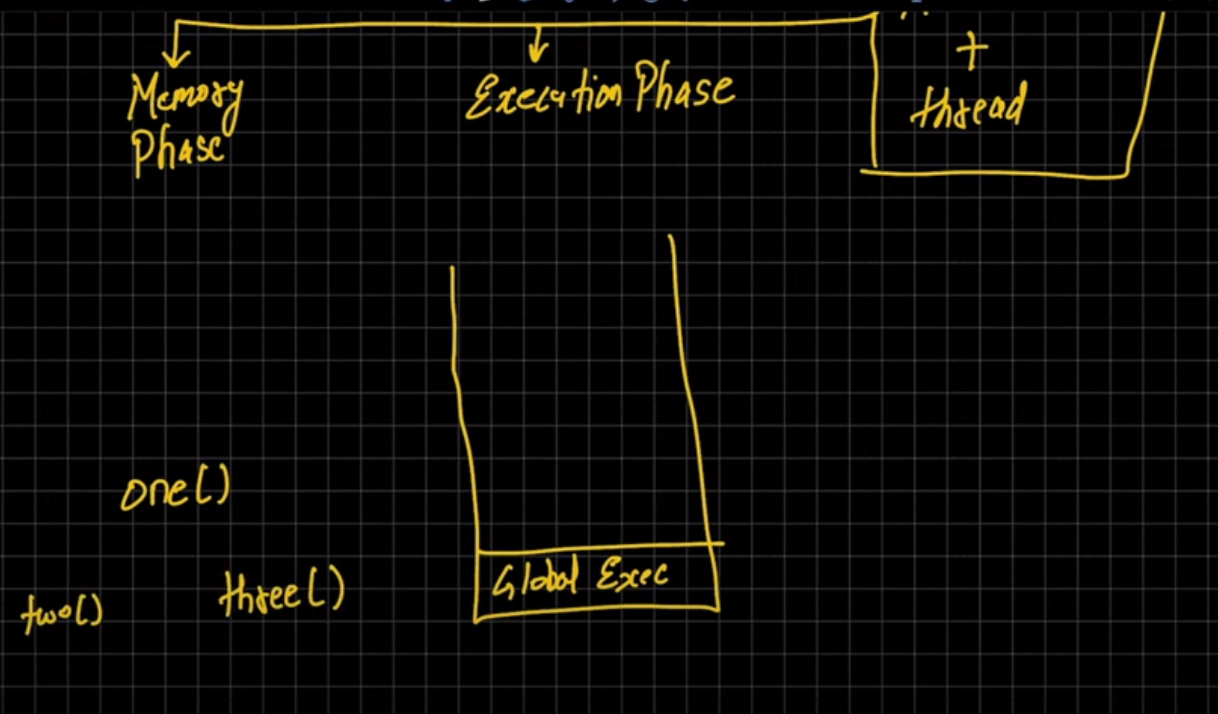 Memory
Phase
Execution Phase
+
thread
one()
two()
three()
Global Exec